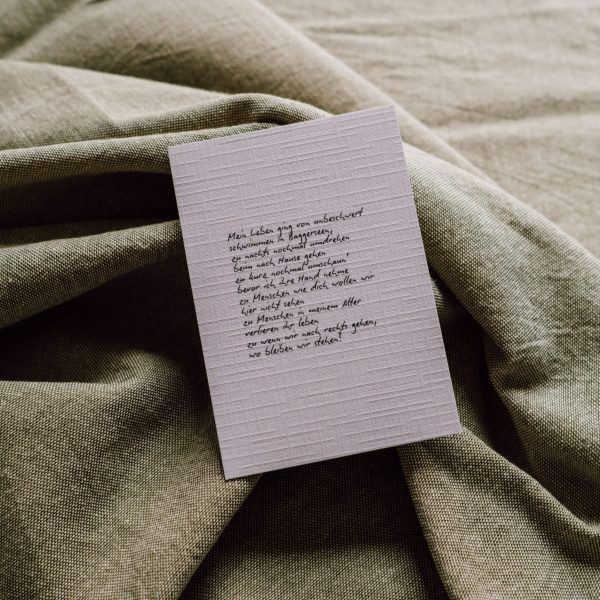 Mein Leben ging von unbeschwert
schwimmen in Baggerseen,
zu nachts nochmal umdrehen
beim nach Hause gehen
zu kurz nochmal umschaun'
bevor ich ihre Hand nehme
zu Menschen wie dich wollen wir
hier nicht sehen
zu Menschen in meinem Alter
verlieren ihr leben
zu wenn wir nach rechts gehen,
wo bleiben wir stehen?